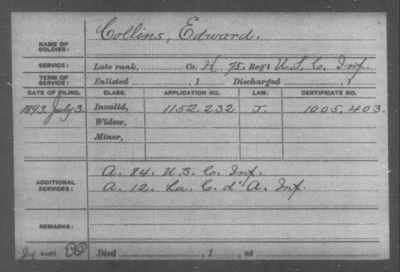 NAME OF SOLDIER: Collins, Edward.
SERVICE: Late rank, Co. H, 75 Reg't U.S.C. Inf.
TERM OF SERVICE: Enlisted , 1 Discharged , 1
DATE OF FILING. CLASS. APPLICATION NO. LAW. CERTIFICATE NO.
1893, July 3. Invalid, 1152.232 J. 1005.403
Widow,
Minor,
ADDITIONAL SERVICES: A. 84. U.S.C. Inf.
A. 12. La. C. d' A. Inf.
REMARKS:
Died , 1 , at